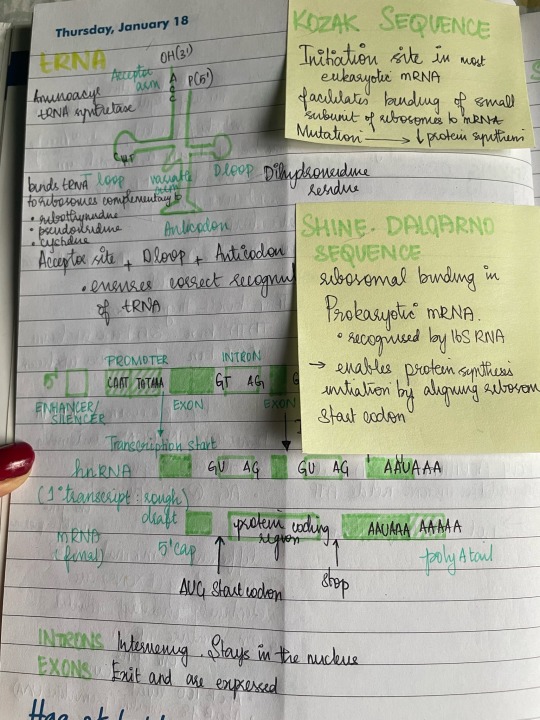 Thursday, January 18
tRNA
OH(3')
Acceptor arm
A
C
C
P(5')
Aminoacyl
tRNA synthetase
CψT
T loop
variable
arm
D loop
Dihydrouridine
residue
binds tRNA
to ribosomes complementary to
• ribothymidine
• pseudouridine
• cytidine
Anticodon
Acceptor site + D loop + Anticodon
• ensures correct
of tRNA
KOZAK SEQUENCE
Initiation site in most
eukaryotic mRNA
facilitates binding of small
subunit of ribosomes to mRNA
Mutation → ↓ protein synthesis
SHINE-DALGARNO
SEQUENCE
ribosomal binding in
Prokaryotic mRNA.
• recognised by 16S RNA
→ enables protein synthesis
initiation by aligning ribosom
start codon
PROMOTER
INTRON
5'
CAAT TATAAA
GT AG
G
ENHANCER/
SILENCER
EXON
EXON
Transcription start
hnRNA
GU AG
GU AG
AAUAAA
(1° transcript: rough
draft)
mRNA
(final)
5' cap
protein coding
region
AAUAAA AAAAA
poly A tail
AUG Start codon
Stop
INTRONS Intervening. Stays in the nucleus
EXONS Exit and are expressed